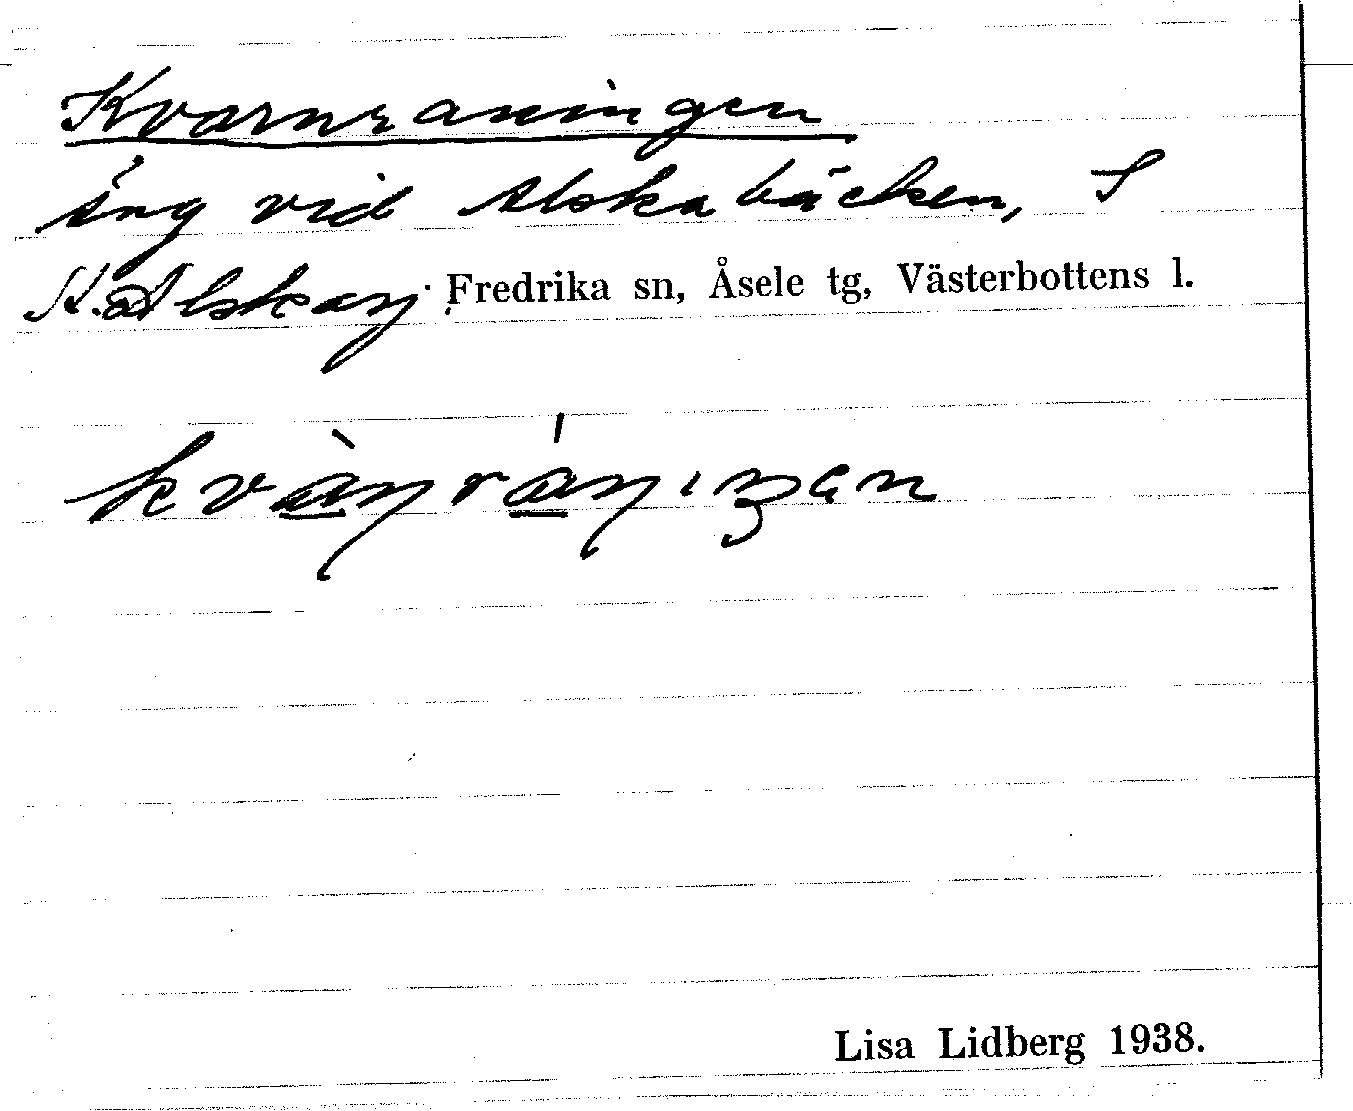 Kvarnraningen
äng vid Alskabäcken, S
N. Alskan; Fredrika sn, Åsele tg, Västerbottens l.
kvàn̨rán̨ıŋɐn
Lisa Lidberg 1938.